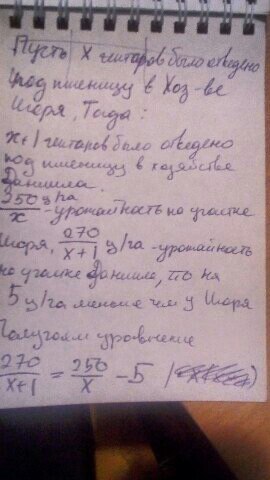 Пусть x гектаров было отведено
под пшеницу в хоз-ве
Игоря, Тогда:
x+1 гектаров было отведено
под пшеницу в хозяйстве
Даниила.
250/x ц/га - урожайность на участке
Игоря, 270/x+1 ц/га - урожайность
на участке Даниила, на
5 ц/га меньше чем у Игоря
Получаем уравнение
270/x+1 = 250/x - 5